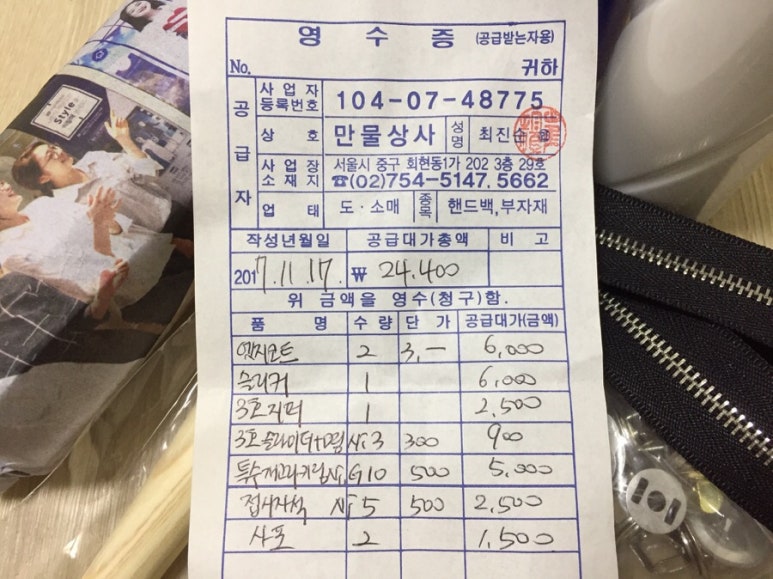 Style
영 수 증 (공급받는자용)
No. 귀하
공급자
사업자등록번호 104-07-48775
상 호 만물상사 성명 최진순
사업장소재지 서울시 중구 회현동1가 202 3층 29호
☎(02)754-5147, 5662
업 태 도·소매 종목 핸드백,부자재
작성년월일 공급대가총액 비 고
2017.11.17. ₩ 24,400
위 금액을 영수(청구)함.
품 명 수 량 단 가 공급대가(금액)
엣지코트 2 3,— 6,000
슬리커 1 6,000
3호지퍼 1 2,500
3호슬라이더+D링 3 300 900
10 500 5,000
접시자석 5 500 2,500
사포 2 1,500